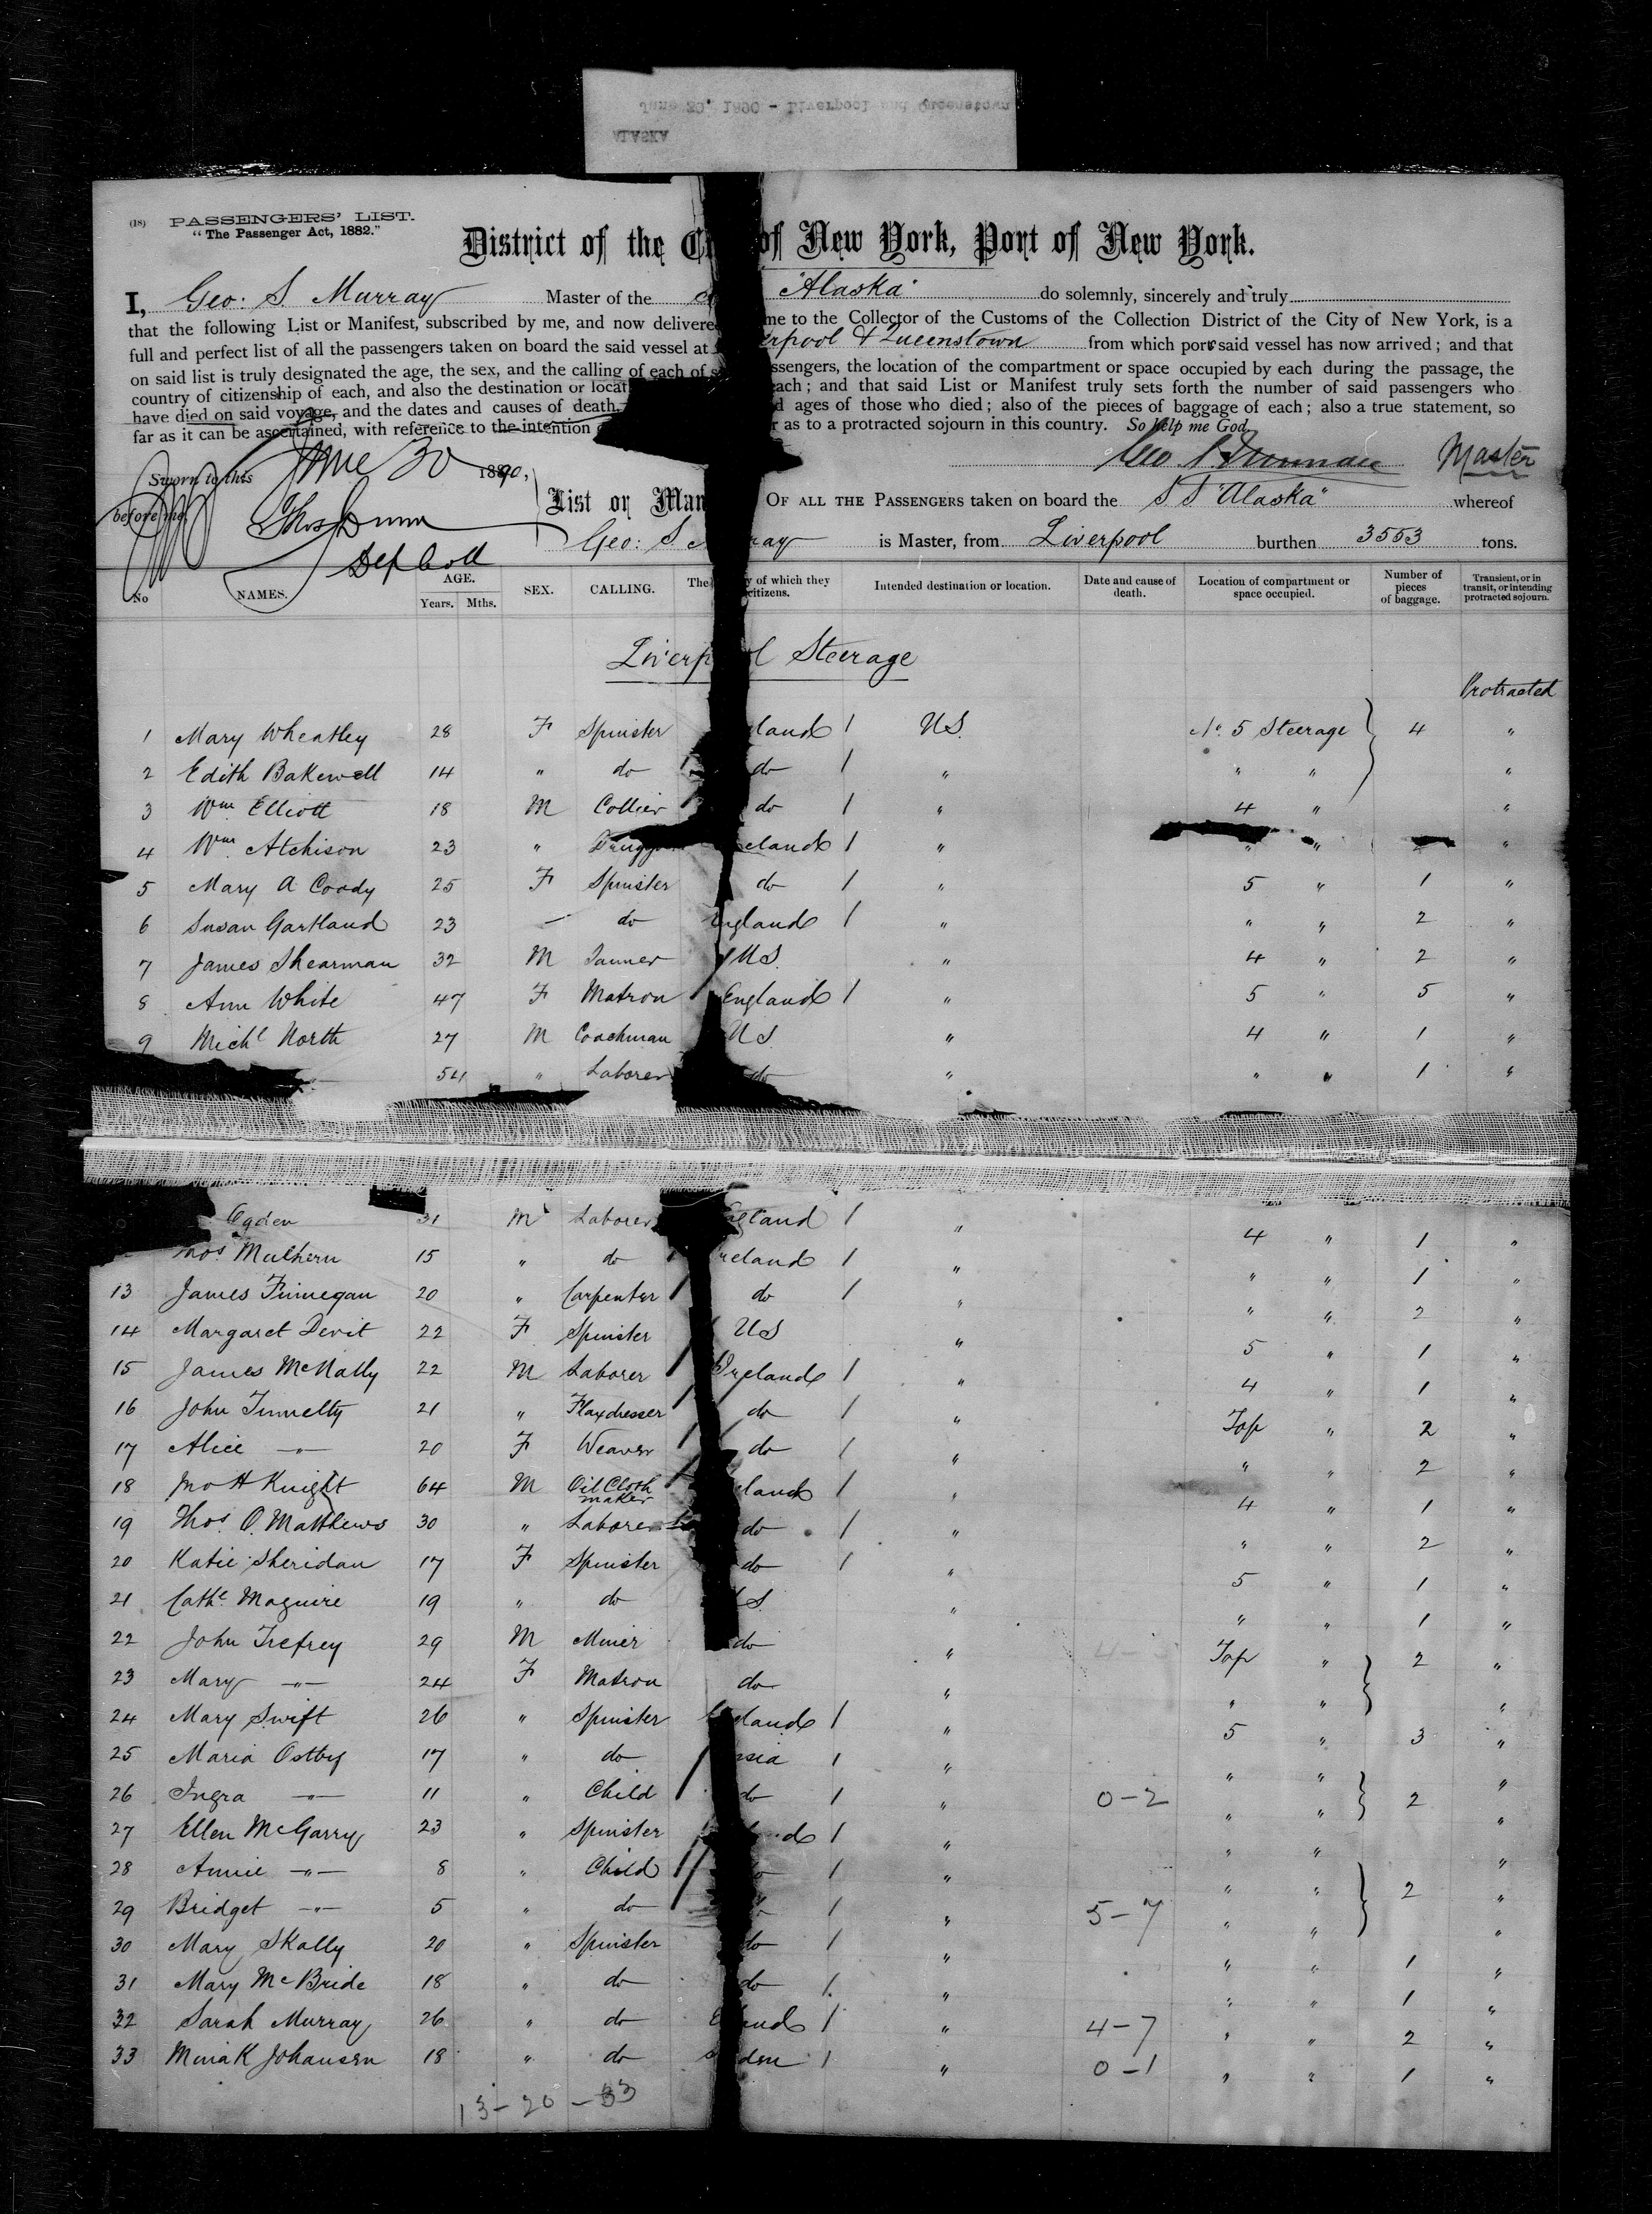 June 30, 1890 - Liverpool and Queenstown
ALASKA
(18) PASSENGERS' LIST.
"The Passenger Act, 1882."
District of the of New York, Port of New York.
I, Geo: S. Murray Master of the "Alaska" do solemnly, sincerely and truly
that the following List or Manifest, subscribed by me, and now delivered me to the Collector of the Customs of the Collection District of the City of New York, is a
full and perfect list of all the passengers taken on board the said vessel at erpool & Queenstown from which ports said vessel has now arrived; and that
on said list is truly designated the age, the sex, and the calling of each of ssengers, the location of the compartment or space occupied by each during the passage, the
country of citizenship of each, and also the destination or locat each; and that said List or Manifest truly sets forth the number of said passengers who
have died on said voyage, and the dates and causes of death, d ages of those who died; also of the pieces of baggage of each; also a true statement, so
far as it can be ascertained, with reference to the intention r as to a protracted sojourn in this country. So help me God.
Sworn to this June 30 1890, Geo S Murray Master
before me List or Man OF ALL THE PASSENGERS taken on board the S S "Alaska" whereof
Geo: S ray is Master, from Liverpool burthen 3553 tons.
Dep Coll
No NAMES. AGE. Years. Mths. SEX. CALLING. The y of which they citizens. Intended destination or location. Date and cause of death. Location of compartment or space occupied. Number of pieces of baggage. Transient, or in transit, or intending protracted sojourn.
Liverp l Steerage
Protracted
1 Mary Wheatley 28 F Spinster land 1 U.S. No. 5 Steerage 4 "
2 Edith Bakewell 14 " do do 1 " " " "
3 Wm. Elliott 18 M Collier do 1 " 4 " "
4 Wm. Atchison 23 " Drugg eland 1 " " " "
5 Mary A Coody 25 F Spinster do 1 " 5 " 1 "
6 Susan Gartland 23 - do England 1 " " " 2 "
7 James Shearman 32 M Tanner U.S. " 4 " 2 "
8 Ann White 47 F Matron England 1 " 5 " 5 "
9 Michl North 27 M Coachman U.S. " 4 " 1 "
54 " Laborer do " " " 1 "
Ogden 31 M Laborer gland 1 " 4 " 1 "
hos Mulhern 15 " do reland 1 " " " 1 "
13 James Finnegan 20 " Carpenter do 1 " " " 2 "
14 Margaret Devit 22 F Spinster U.S " 5 " 1 "
15 James McNally 22 M Laborer Ireland 1 " 4 " 1 "
16 John Finnelty 21 " Flaxdresser do 1 " Top " 2 "
17 Alice -"- 20 F Weaver do 1 " " " 2 "
18 Jno H Knight 64 M Oil Cloth maker land 1 " 4 " 1 "
19 Thos. O. Matthews 30 " Laborer do 1 " " " 2 "
20 Katie Sheridan 17 F Spinster do 1 " 5 " 1 "
21 Cathe Maguire 19 " do S. " " " 1 "
22 John Trefrey 29 M Miner do " Top " 2 "
23 Mary -"- 24 F Matron do " " " "
24 Mary Swift 26 " Spinster land 1 " 5 " 3 "
25 Maria Ostby 17 " do sia 1 " " " "
26 Ingra -"- 11 " Child do 1 " 0-2 " " 2 "
27 Ellen McGarry 23 " Spinster d 1 " " " "
28 Annie -"- 8 " Child 1 " " " 2 "
29 Bridget -"- 5 " do 1 " 5-7 " " "
30 Mary Skally 20 " Spinster do 1 " " " 1 "
31 Mary McBride 18 " do do 1 " " " 1 "
32 Sarah Murray 26 " do and 1 " 4-7 " " 2 "
33 Mina K Johansen 18 " do den 1 " 0-1 " " 1 "
13-20-33